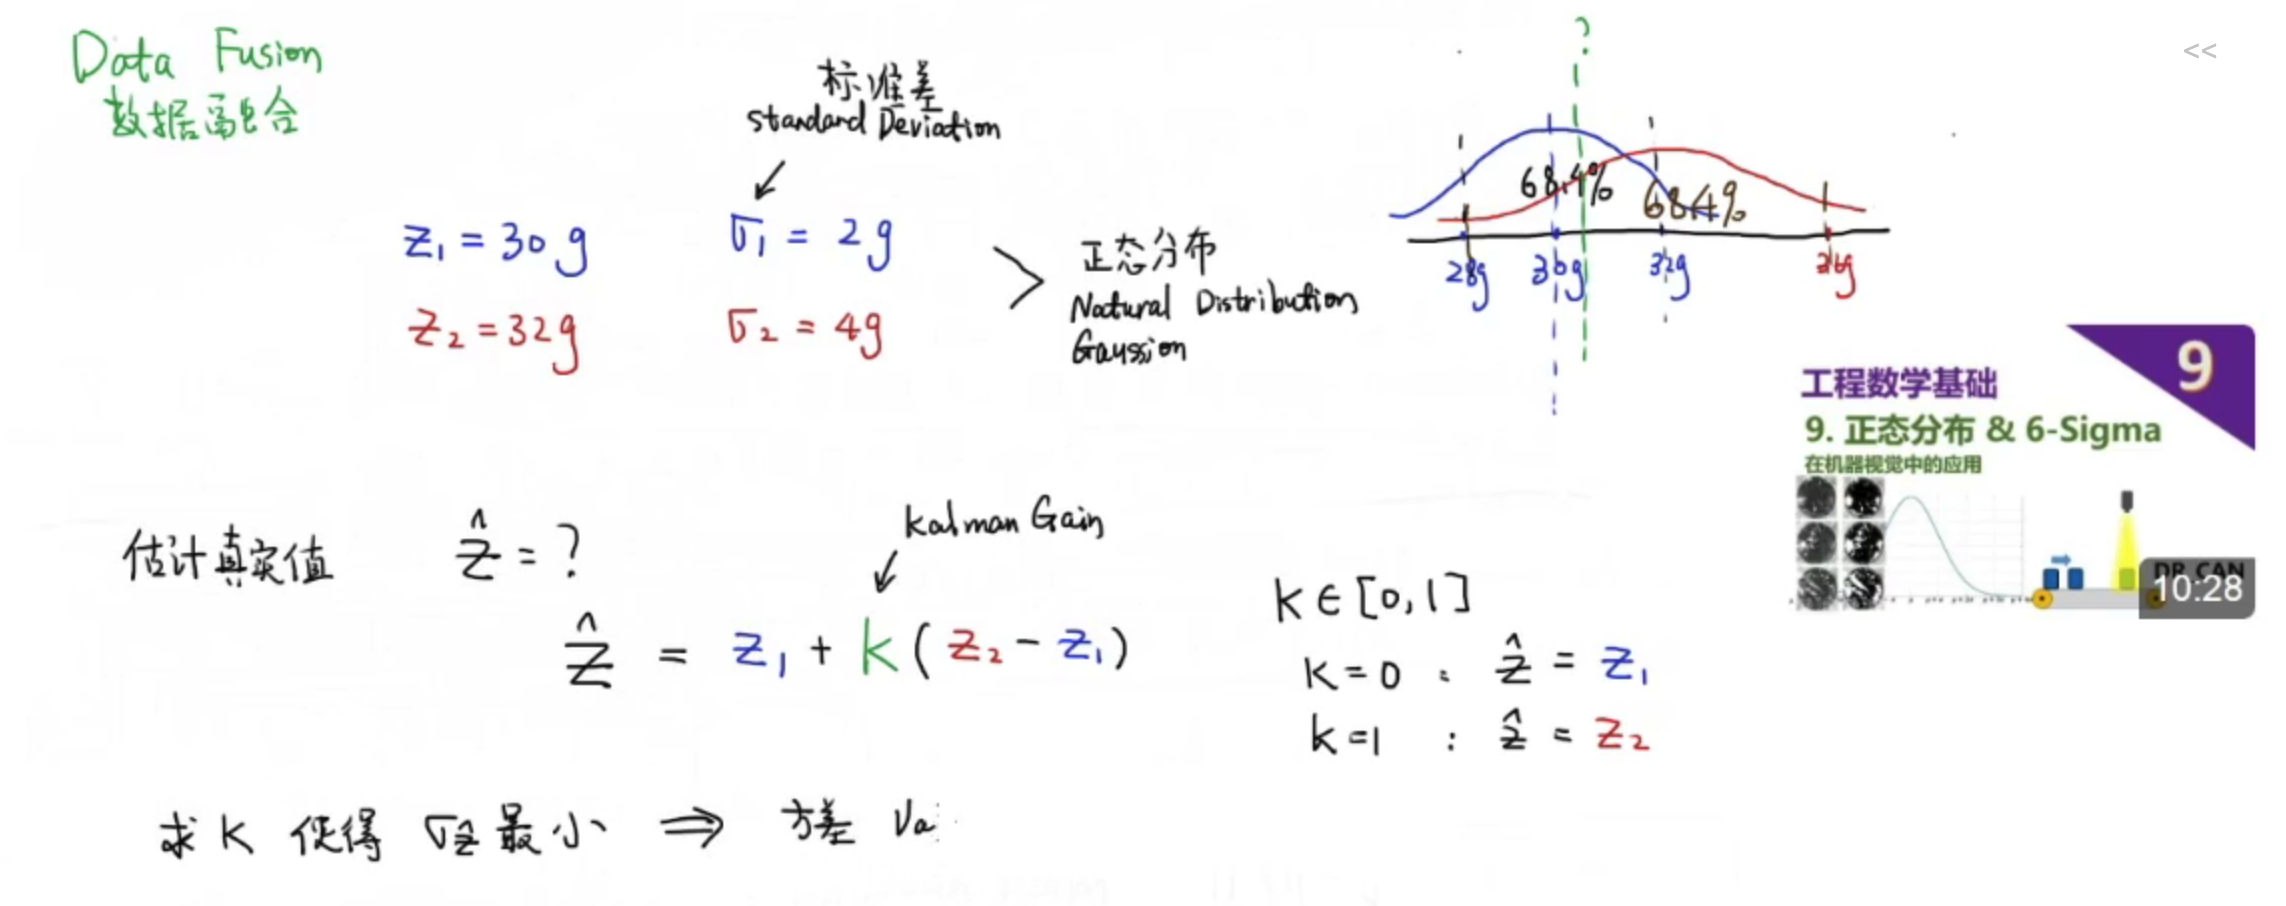 Data Fusion
数据融合
标准差
Standard Deviation
z₁ = 30g
σ₁ = 2g
z₂ = 32g
σ₂ = 4g
正态分布
Natural Distribution
Gaussion
?
<<
68.4%
68.4%
28g 30g 32g 36g
9
工程数学基础
9. 正态分布 & 6-Sigma
在机器视觉中的应用
DR. CAN
10:28
估计真实值 ẑ = ?
Kalman Gain
ẑ = z₁ + k(z₂ - z₁)
k ∈ [0,1]
k = 0 : ẑ = z₁
k = 1 : ẑ = z₂
求 k 使得 σẑ 最小 ⇒ 方差 Va